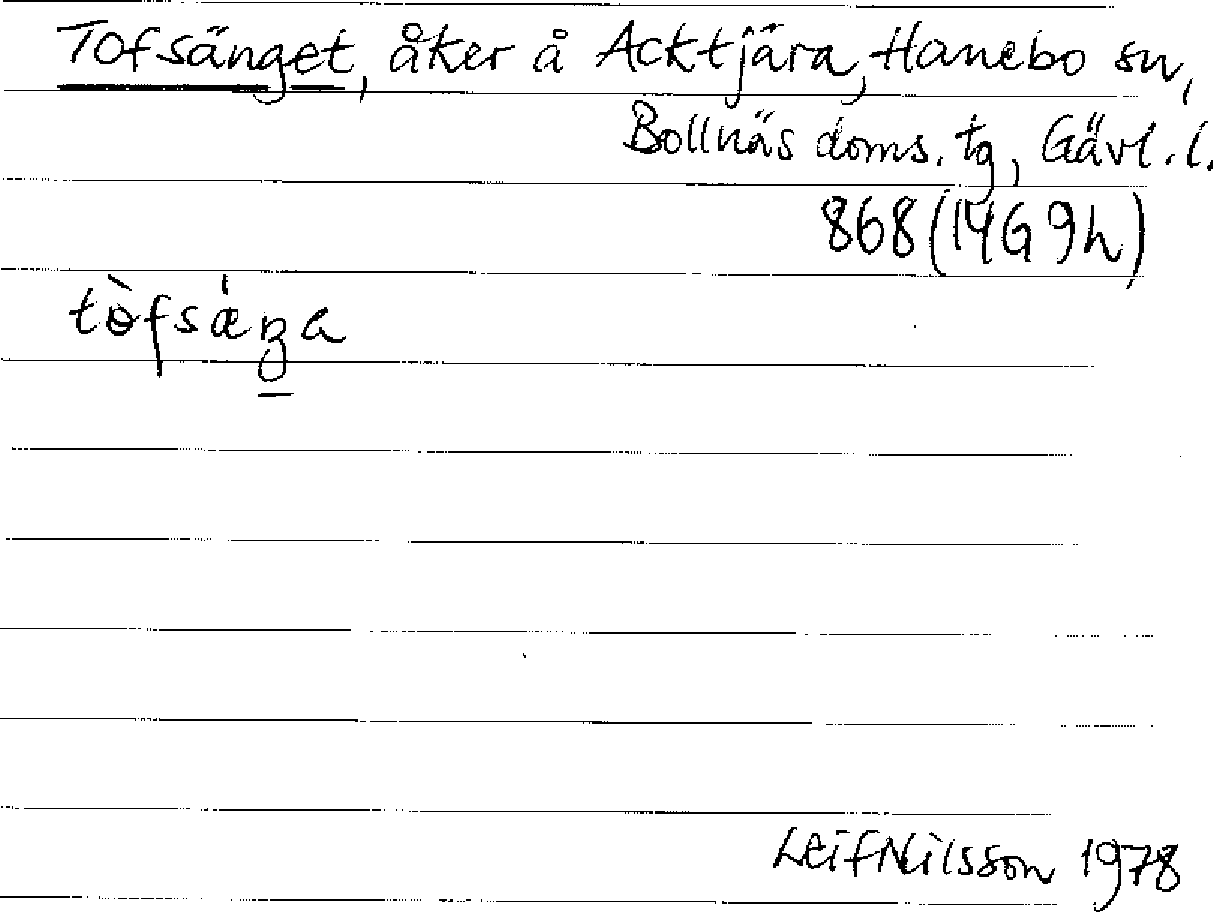 Tofsänget, åker å Acktjära, Hanebo sn,
Bollnäs doms. tg, Gävl. l.
868 (14G 9h)
tɵ̀fsǽŋa
Leif Nilsson 1978